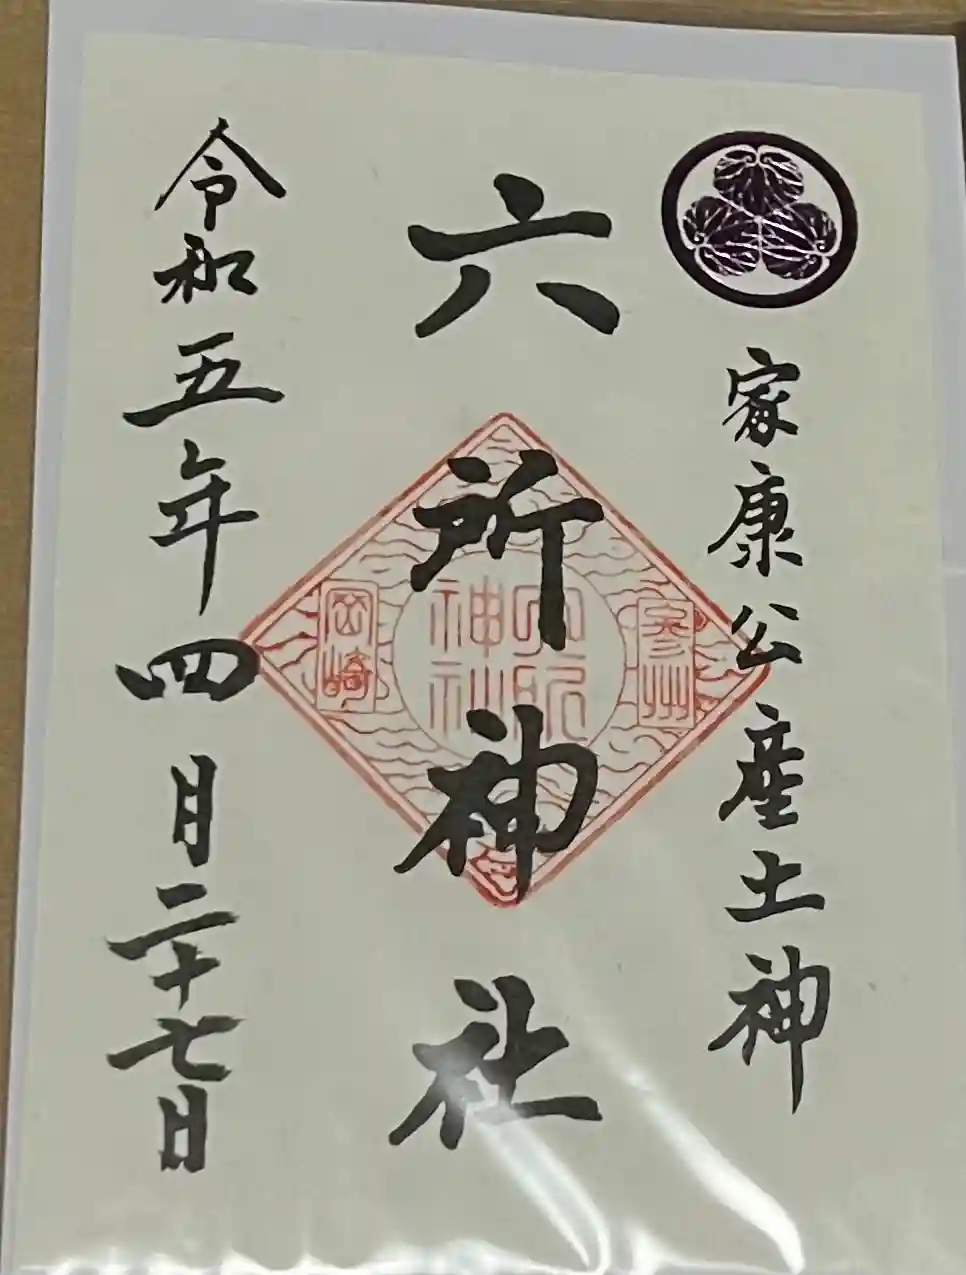 家康公産土神
六所神社
参州
六所
神社
岡崎
令和五年四月二十七日